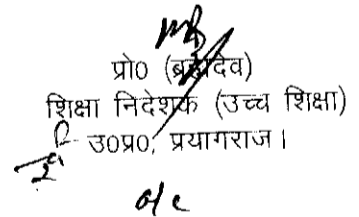 प्रो0 (ब्रह्मदेव)
शिक्षा निदेशक (उच्च शिक्षा)
उ0प्र0, प्रयागराज।
o/c